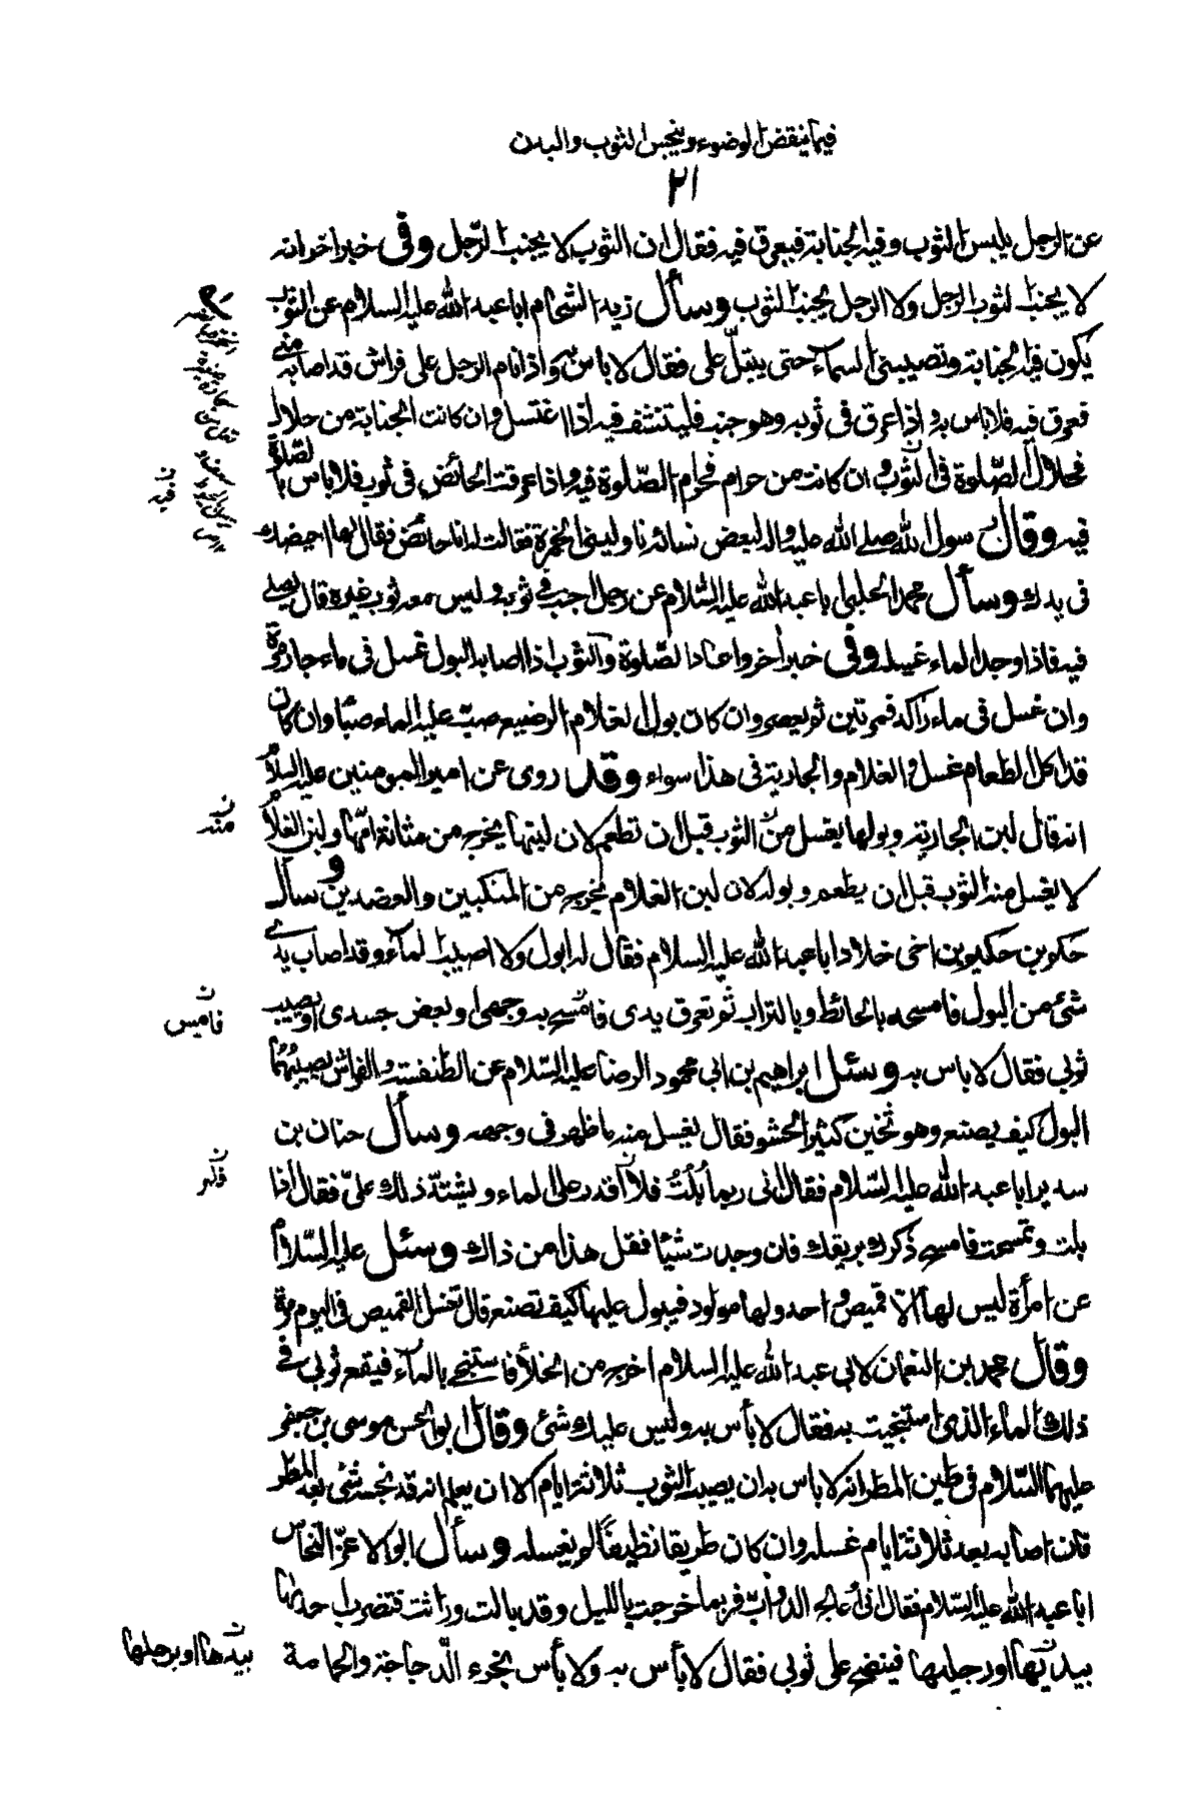 فيما ينقض الوضوء وينجس الثوب والبدن
٢١
عن الرجل يلبس الثوب وفيه الجنابة فيعرق فيه فقال ان الثوب لا يجنب الرّجل وفى خبر اخر انه
لا يجنب الثوب الرجل ولا الرجل يجنب الثوب وسأل زيد الشحام ابا عبد الله عليه السلام عن الثوب
يكون فيه الجنابة وتصيبنى السمآء حتى يبتلّ على فقال لا باس به واذا نام الرجل على فراش قد اصابه منى
فعرق فيه فلا باس به واذا عرق فى ثوبه وهو جنب فليتنشف فيه اذا اغتسل وان كانت الجنابة من حلال
فحلال الصّلوة فى الثوب وان كانت من حرام فحرام الصّلوة فيه واذا عرقت الحائض فى ثوب فلا باس بالصّلوة
فيه وقال رسول الله صلى الله عليه واله لبعض نسائه ناولينى الخمرة فقالت له انا حائض فقال لها احيضك
فى يدك وسأل محمد الحلبى ابا عبد الله عليه السّلام عن رجل اجنب فى ثوبه وليس معه ثوب غيره قال يصلى
فيه فاذا وجد الماء غسله وفى خبر اخر واعاد الصّلوة والثوب اذا اصابه البول غسل فى ماء جار مرة
وان غسل فى ماء راكد فمرتين ثم يعصر وان كان بول الغلام الرضيع صبّ عليه الماء صبّا وان كان
قد اكل الطعام غسل والغلام والجارية فى هذا سواء وقد روى عن امير المومنين عليه السلام
انه قال لبن الجارية وبولها يغسل منه الثوب قبل ان تطعم لان لبنها يخرج من مثانة امّها ولبن الغلام
لا يغسل منه الثوب قبل ان يطعم وبوله لان لبن الغلام يخرج من المنكبين والعضدين وسأل
حكم بن حكيم بن اخى خلاد ابا عبد الله عليه السلام فقال له ابول ولا اصيب المآء وقد اصاب يدى
شئ من البول فامسحه بالحائط وبالتراب ثم تعرق يدى فامسح به وجهى او بعض جسدى او يصيب
ثوبى فقال لا باس به وسئل ابراهيم بن ابى محمود الرضا عليه السّلام عن الطنفسة والفراش يصيبهما
البول كيف يصنع وهو ثخين كثير الحشو فقال يغسل منه ما ظهر فى وجهه وسأل حنان بن
سدير ابا عبد الله عليه السّلام فقال انى ربما بُلتُ فلا اقدر على الماء ويشتدّ ذلك علىّ فقال اذا
بلت وتمسحت فامسح ذكرك بريقك فان وجدت شيئا فقل هذا من ذاك وسئل عليه السّلام
عن امرأة ليس لها الّا قميص واحد ولها مولود فيبول عليها كيف تصنع قال تغسل القميص فى اليوم مرة
وقال محمد بن النعمان لابى عبد الله عليه السلام اخرج من الخلأ فاستنجى بالمآء فيقع ثوبى فى
ذلك الماء الذى استنجيت به فقال لا بأس به وليس عليك شئ وقال ابو الحسن موسى بن جعفر
عليهما السّلام فى طين المطر انه لا باس به ان يصيب الثوب ثلاثة ايام الا ان يعلم انه قد نجسه شئ بعد المطر
فان اصابه بعد ثلاثة ايام غسله وان كان طريقا نظيفاً لم يغسله وسأل ابو الاعزّ النخاس
ابا عبد الله عليه السّلام فقال انى اعالج الدوابّ فربما خرجت بالليل وقد بالت وراثت فتضرب احدها
بيديها او رجليها فينضح على ثوبى فقال لا بأس به ولا بأس بخرء الدّجاجة والحمامة
فيه
منه
فامس
فلم
بيدها او برجلها